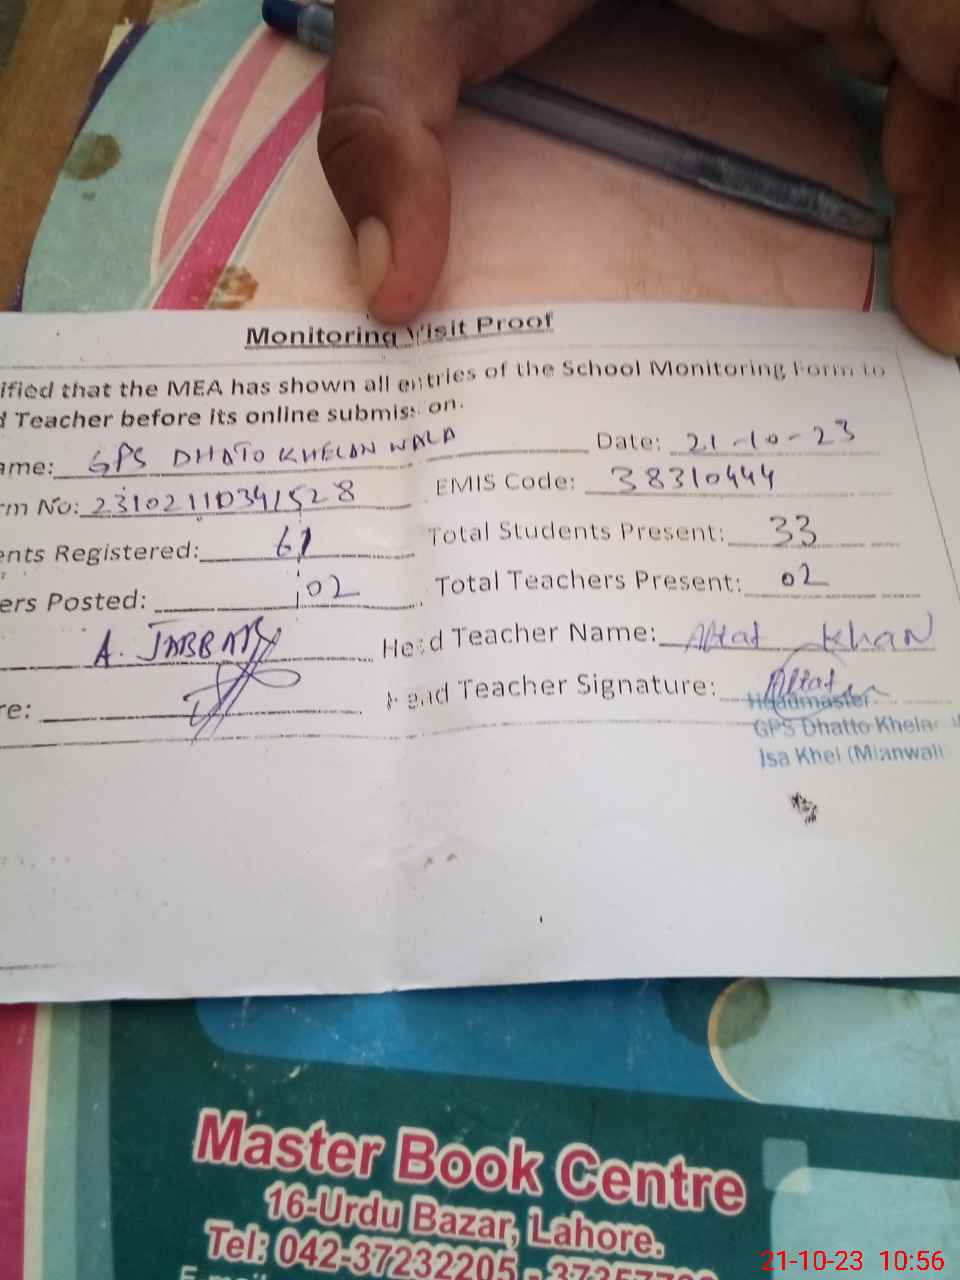 Monitoring Visit Proof
ified that the MEA has shown all entries of the School Monitoring Form to
d Teacher before its online submission.
ame: GPS DHATO KHELAN WALA Date: 21-10-23
rm No: 23102110341528 EMIS Code: 38310444
ents Registered: 61 Total Students Present: 33
ers Posted: 02 Total Teachers Present: 02
A. JABBAR Head Teacher Name: Altaf Khan
re: Head Teacher Signature: Altaf
Headmaster
GPS Dhatto Khelan
Isa Khel (Mianwali
Master Book Centre
16-Urdu Bazar, Lahore.
Tel: 042-37232205 - 37357
E-mail
21-10-23 10:56